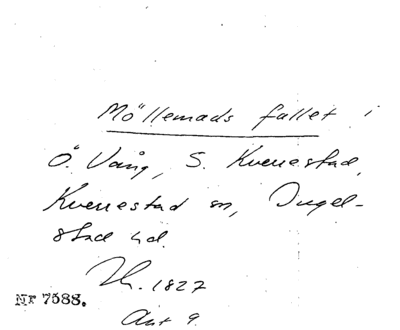 Möllemads fallet i
Ö. Vång, S. Kverrestad,
Kverrestad sn, Ingel-
stad hd.
1827
Nr 7588.
Ant 9.